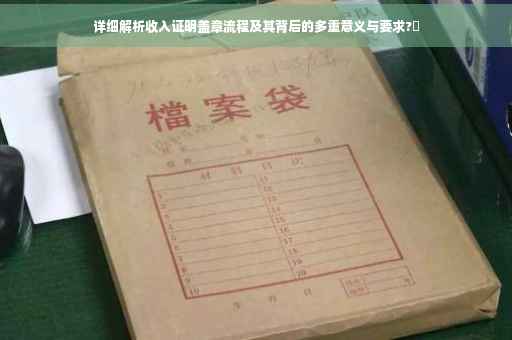 详细解析收入证明盖章流程及其背后的多重意义与要求?
檔案袋
材料目次
1
2
3
4
5
6
7
8
9
10
11
12
13
14
15
16
17
18
19
20
年 月 日